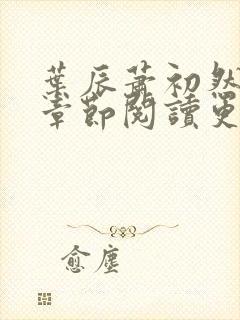 葉辰蕭初然
章節閱讀更
愈塵